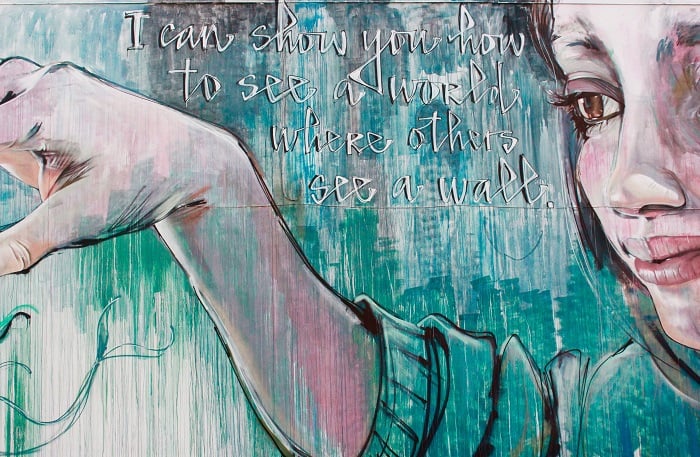 I can show you how
to see a world
where others
see a wall.